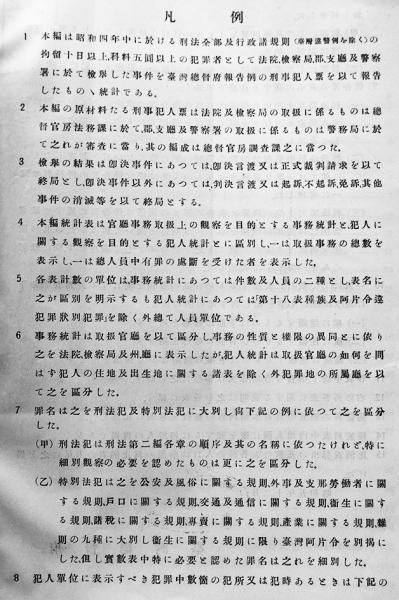 凡例
1 本編は昭和四年中に於ける刑法全部及行政諸規則（臺灣違警例を除く）の
拘留十日以上、科料五圓以上の犯罪者として法院、檢察局、郡、支廳及警察
署に於て檢擧した事件を臺灣總督府報告例の刑事犯人票を以て報告
したものゝ統計である。
2 本編の原材料たる刑事犯人票は法院及檢察局の取扱に係るものは總
督官房法務課に於て、郡、支廳及警察署の取扱に係るものは警務局に於
て之れが審査に當り、其の編成は總督官房調査課之に當つた。
3 檢擧の結果は卽決事件にあつては、卽決言渡又は正式裁判請求を以て
終局とし、卽決事件以外にあつては、判決言渡又は起訴、不起訴、免訴、其他
事件の消滅等を以て終局とする。
4 本編統計表は官廳事務取扱上の觀察を目的とする事務統計と、犯人に
關する觀察を目的とする犯人統計とに區別し、一は取扱事務の總數を
表示し、一は總人員中有罪の處斷を受けた者を表示した。
5 各表計數の單位は、事務統計にあつては件數及人員の二種とし、表名に
之が區別を明示するも犯人統計にあつては「第十八表種族及阿片令違
犯罪狀別犯罪」を除く外總て人員單位である。
6 事務統計は取扱官廳を以て區分し、事務の性質と權限の異同とに依り
之を法院、檢察局及州、廳に表示したが、犯人統計は取扱官廳の如何を問
はず犯人の住地及出生地に關する諸表を除く外犯罪地の所屬廳を以
て之を區分した。
7 罪名は之を刑法犯及特別法犯に大別し、尙下記の例に依つて之を區分
した。
（甲）刑法犯は刑法第二編各章の順序及其の名稱に依つたけれど、特に
細別觀察の必要を認めたものは更に之を區分した。
（乙）特別法犯は之を公安及風俗に關する規則、外事及支那勞働者に關
する規則、戶口に關する規則、交通及通信に關する規則、衞生に關す
る規則、諸稅に關する規則、專賣に關する規則、產業に關する規則、雜
則の九種に大別し衞生に關する規則に限り臺灣阿片令を別揭に
した、但し實數表中特に必要と認めた罪名は之れを細別した。
8 犯人單位に表示すべき犯罪中數箇の犯所又は犯時あるときは下記の